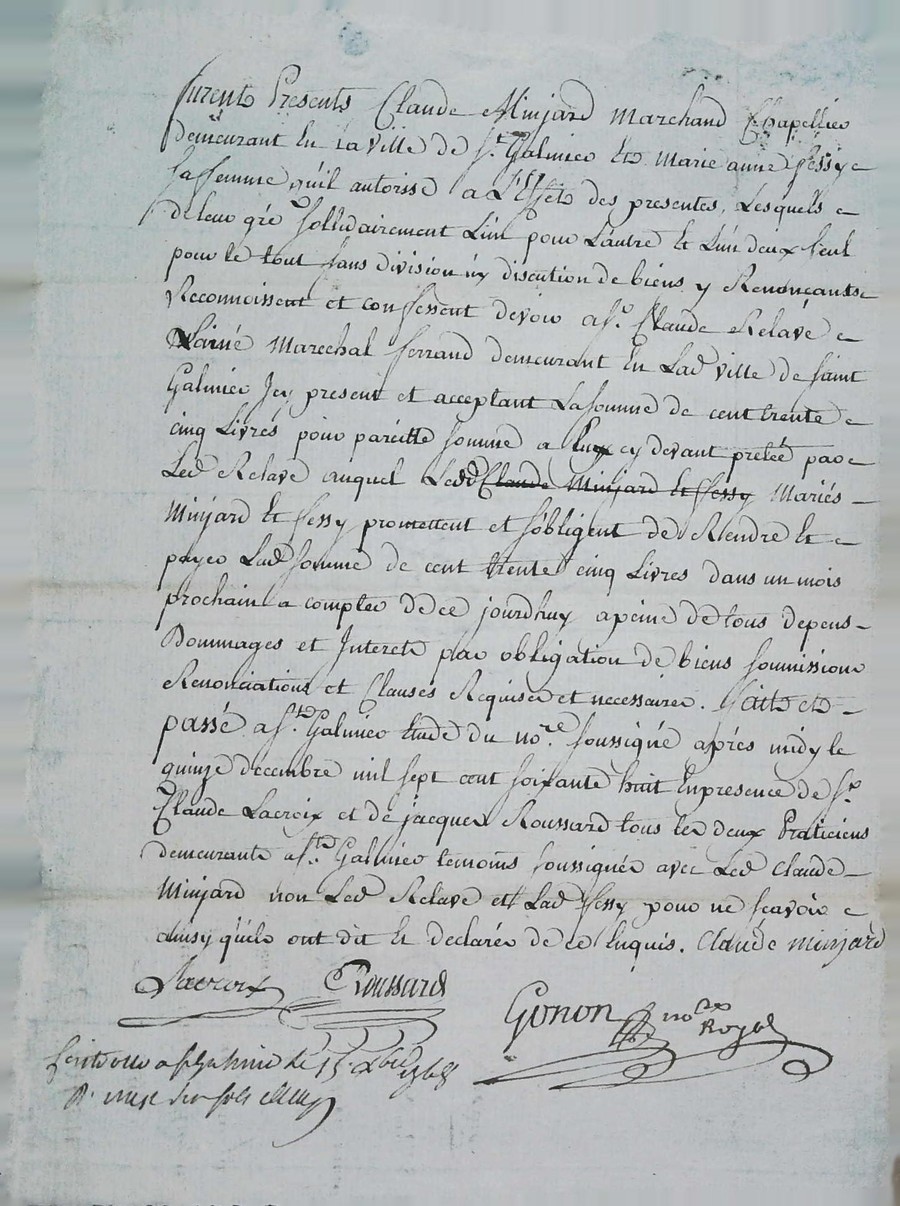 furents Presents Claude Minjard Marchand Chapellier
demeurant En La ville de St Galmier Et Marie anne fessy
sa femme qu'il autorise a L'Effets des presentes, Lesquels
de leur gré sollidairement L'un pour L'autre Et L'un deux seul
pour le tout sans division ny discution de biens y Renonçants
Reconnoissent et confessent devoir a sr. Claude Relave
L'ainé Marechal ferrand demeurant En Lad ville de saint
Galmier Jcy present et acceptant La somme de cent trente
cinq Livrés pour pareille somme a Eux cy devant pretéé par
Led Relave auquel Lesd Claude Minjard Et fessy Mariés
Minjard Et fessy promettent et s'obligent de Rendre Et
payer Lad somme de cent trente cinq Livres dans un mois
prochain a compter de ce jourdhuy a peine de tous depens
Dommages et Interets par obligation de biens soumissions
Renonciations et Clauses Requises et necessaires. faits et
passé a St. Galmier Etude du nore. soussigné aprés midy le
quinze decembre mil sept cent soixante huit En presence de sr
Claude Lacroix et de jacques Roussard tous les deux Praticiens
demeurants a St. Galmier temoins soussignés avec Led Claude
Minjard non Led Relave et Lad fessy pour ne scavoir
ainsy qu'ils ont dit Et declarés de ce Enquis. Claude minjard
Lacroix Roussard
Gonon nore Royal
a st galmier le 15 Xbre 1768